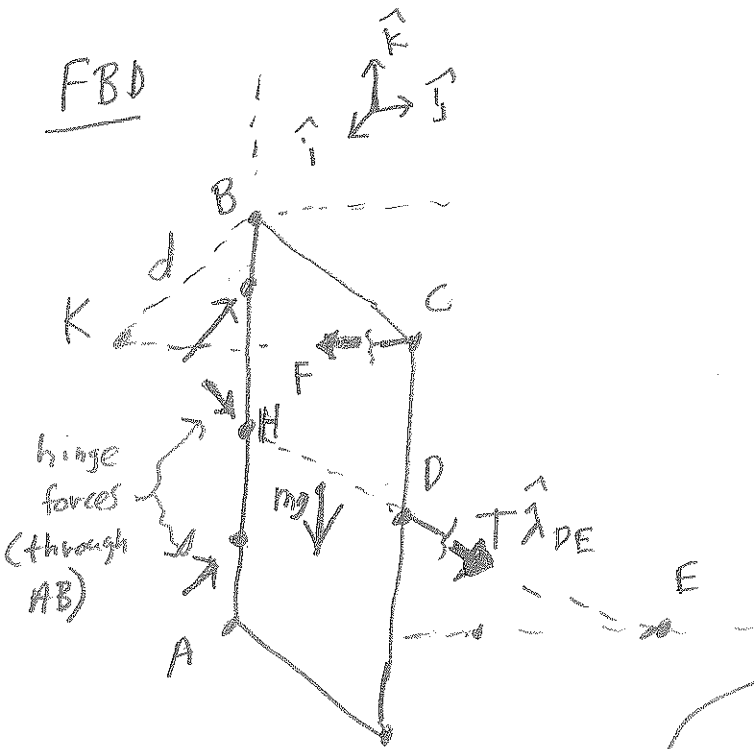 FBD
k̂
ĵ
î
B
d
K
C
F
H
hinge
forces
(through
AB)
mg
D
T λ̂ DE
E
A